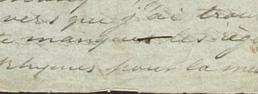 vers que j'ai trou
manque les règ
rhymes pour la me